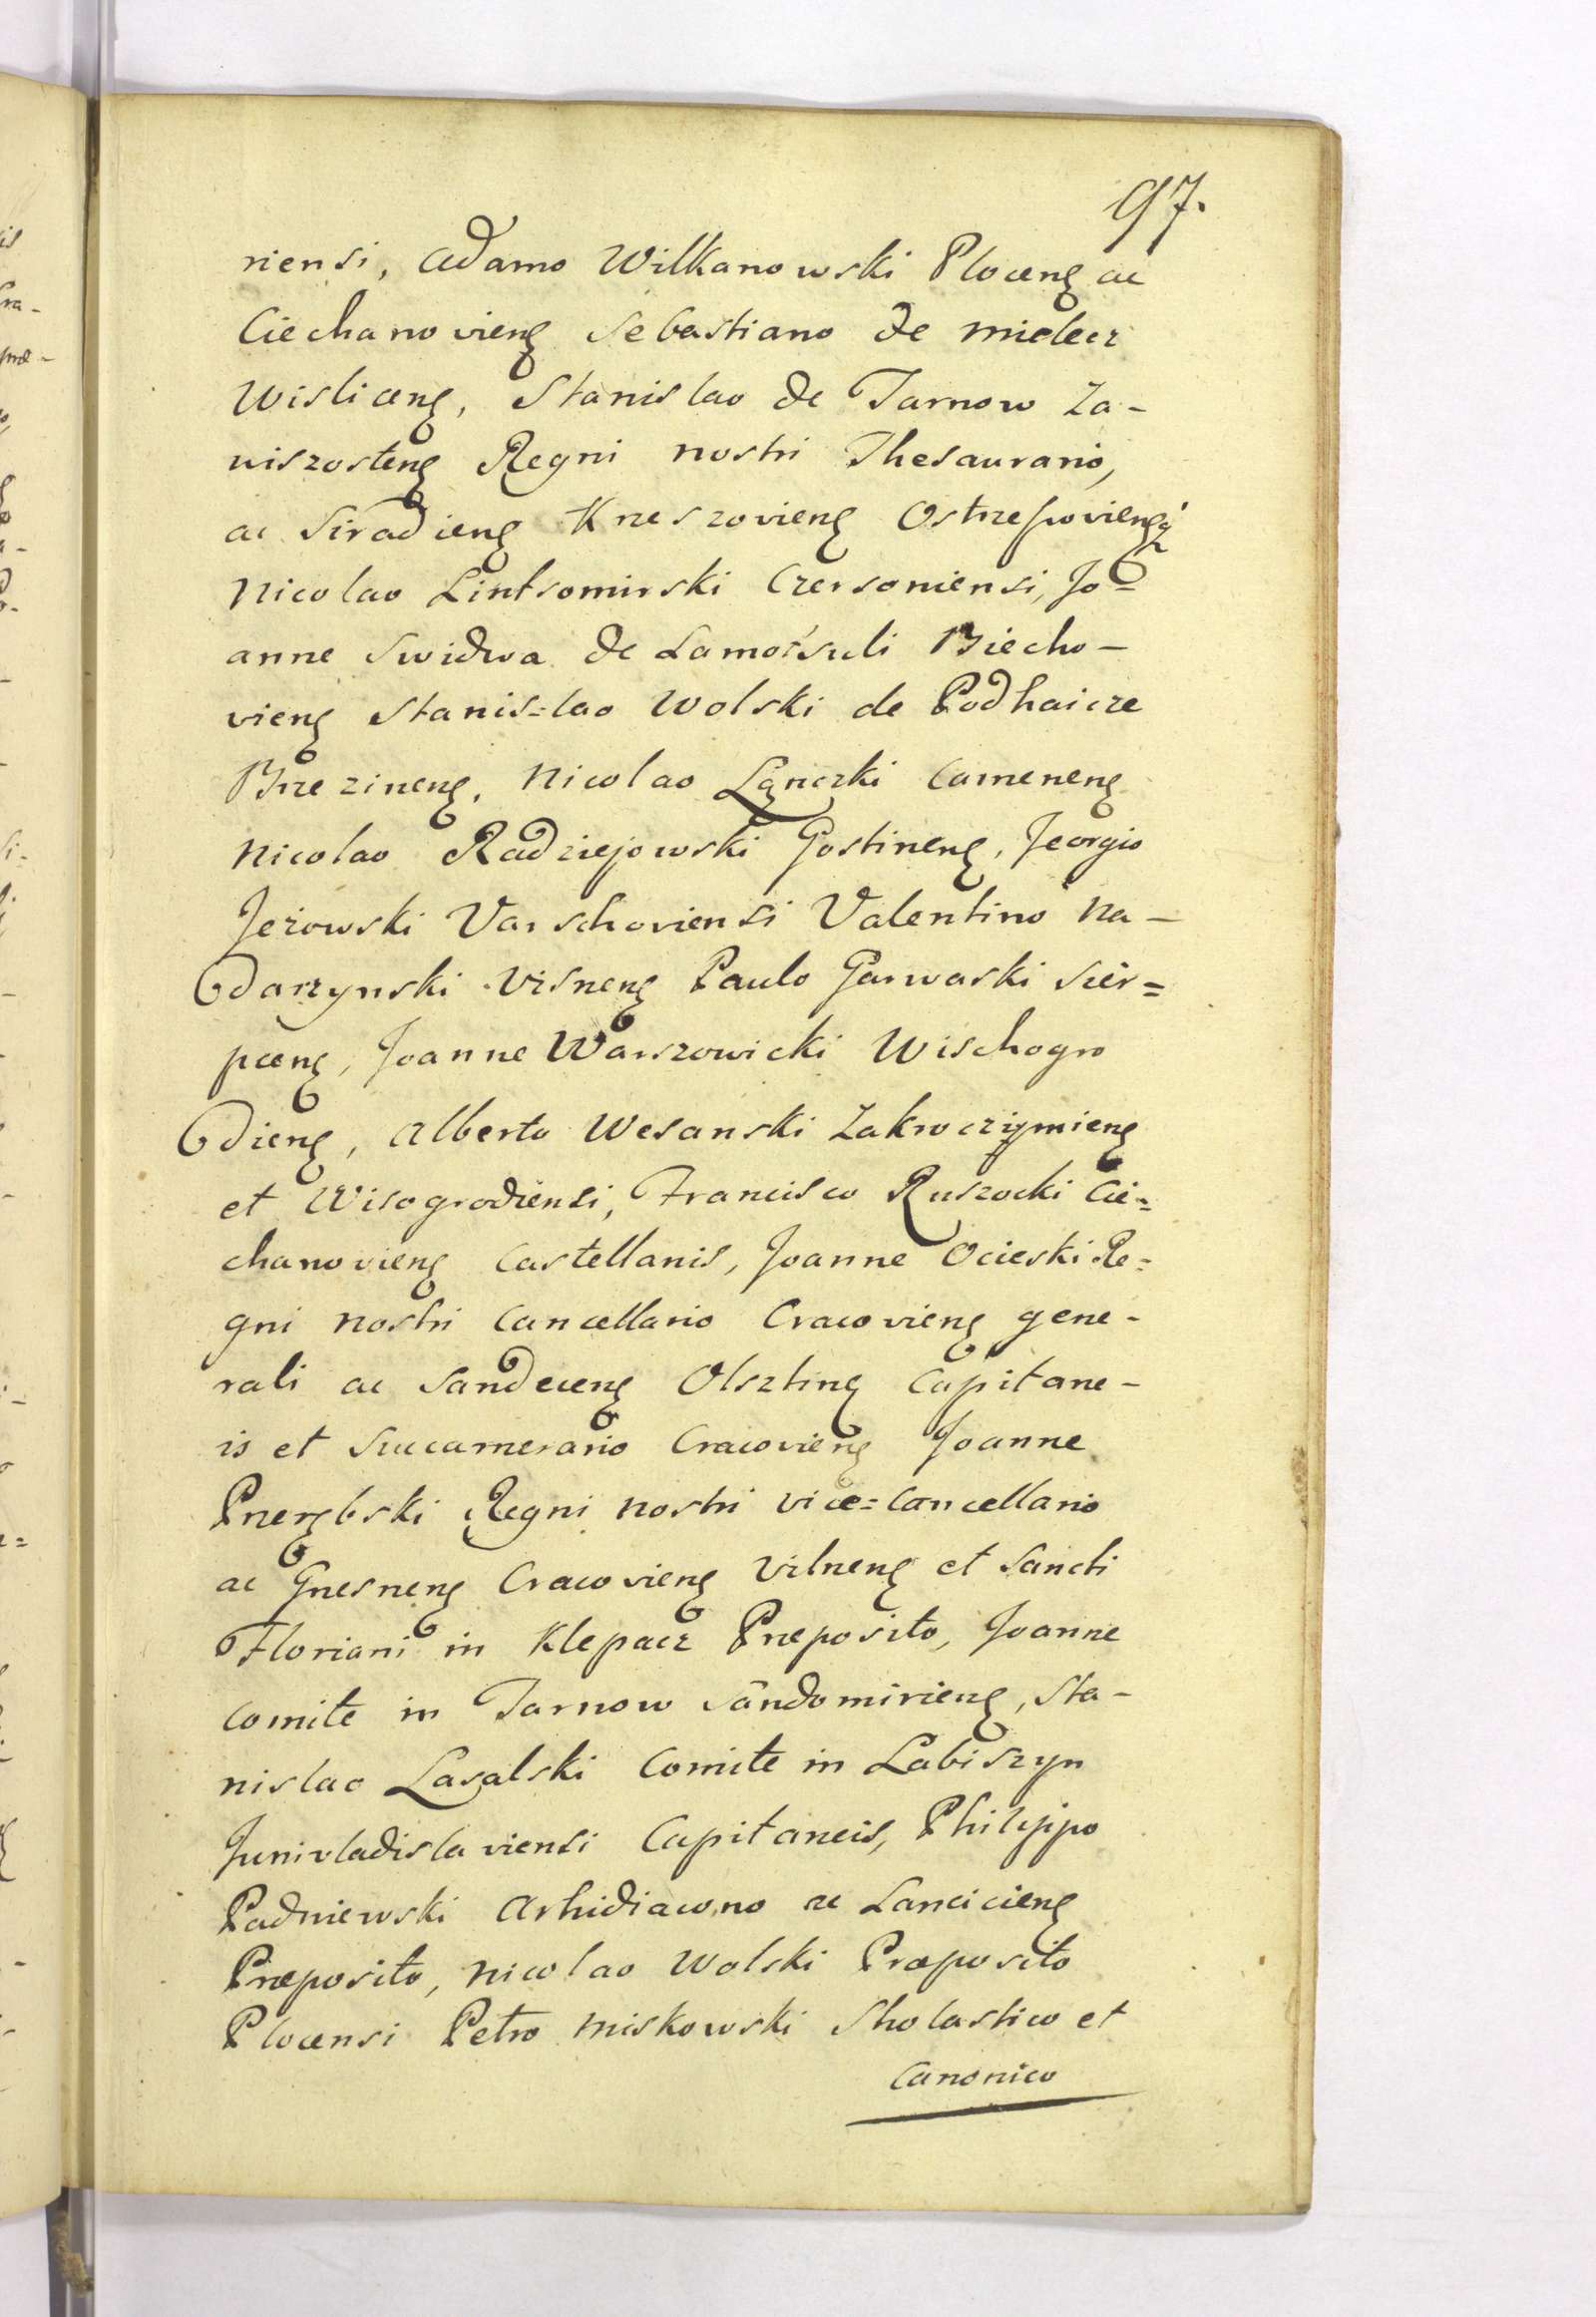 97.
riensi, Adamo Wilkanowski Ploceng ac
Ciechanovieng Sebastiano de Mielecz
Wisliceng, Stanislao de Tarnow Za-
wiszosteng Regni nostri Thesaurario,
ac Siradieng Krzeszovieng Ostrzeszovieng
Nicolao Lintsomirski Czersoniensi, Jo=
anne Swidwa de Szamotuli Biecho-
vieng Stanis=lao Wolski de Podhaicze
Brzezineng, Nicolao Lączki Cameneng
Nicolao Radziejowski Gostineng, Jeorgio
Jeżowski Varschoviensi Valentino Na-
darzynski Visneng Paulo Garwaski Sier=
pceng, Joanne Warszowicki Wischogro
dieng, Alberto Wesanski Zakroczymieng
et Wisogrodiensi, Francisco Ruszocki Cie=
chanovieng Castellanis, Joanne Ocieski Re=
gni nostri Cancellario Cracovieng gene-
rali ac Sandeceng Olszting Capitane-
is et Succamerario Cracovieng Joanne
Przerębski Regni nostri vice=Cancellario
ac Gnesneng Cracovieng Vilneng et Sancti
Floriani in Klepacz Præposito, Joanne
Comite in Tarnow Sandomirieng, Sta-
nislao Lasalski Comite in Labiszyn
Junivladislaviensi Capitaneis, Philippo
Padniewski Arhidiacono ac Lancicieng
Præposito, Nicolao Wolski Præposito
Plocensi Petro Miskowski Sholastico et
Canonico